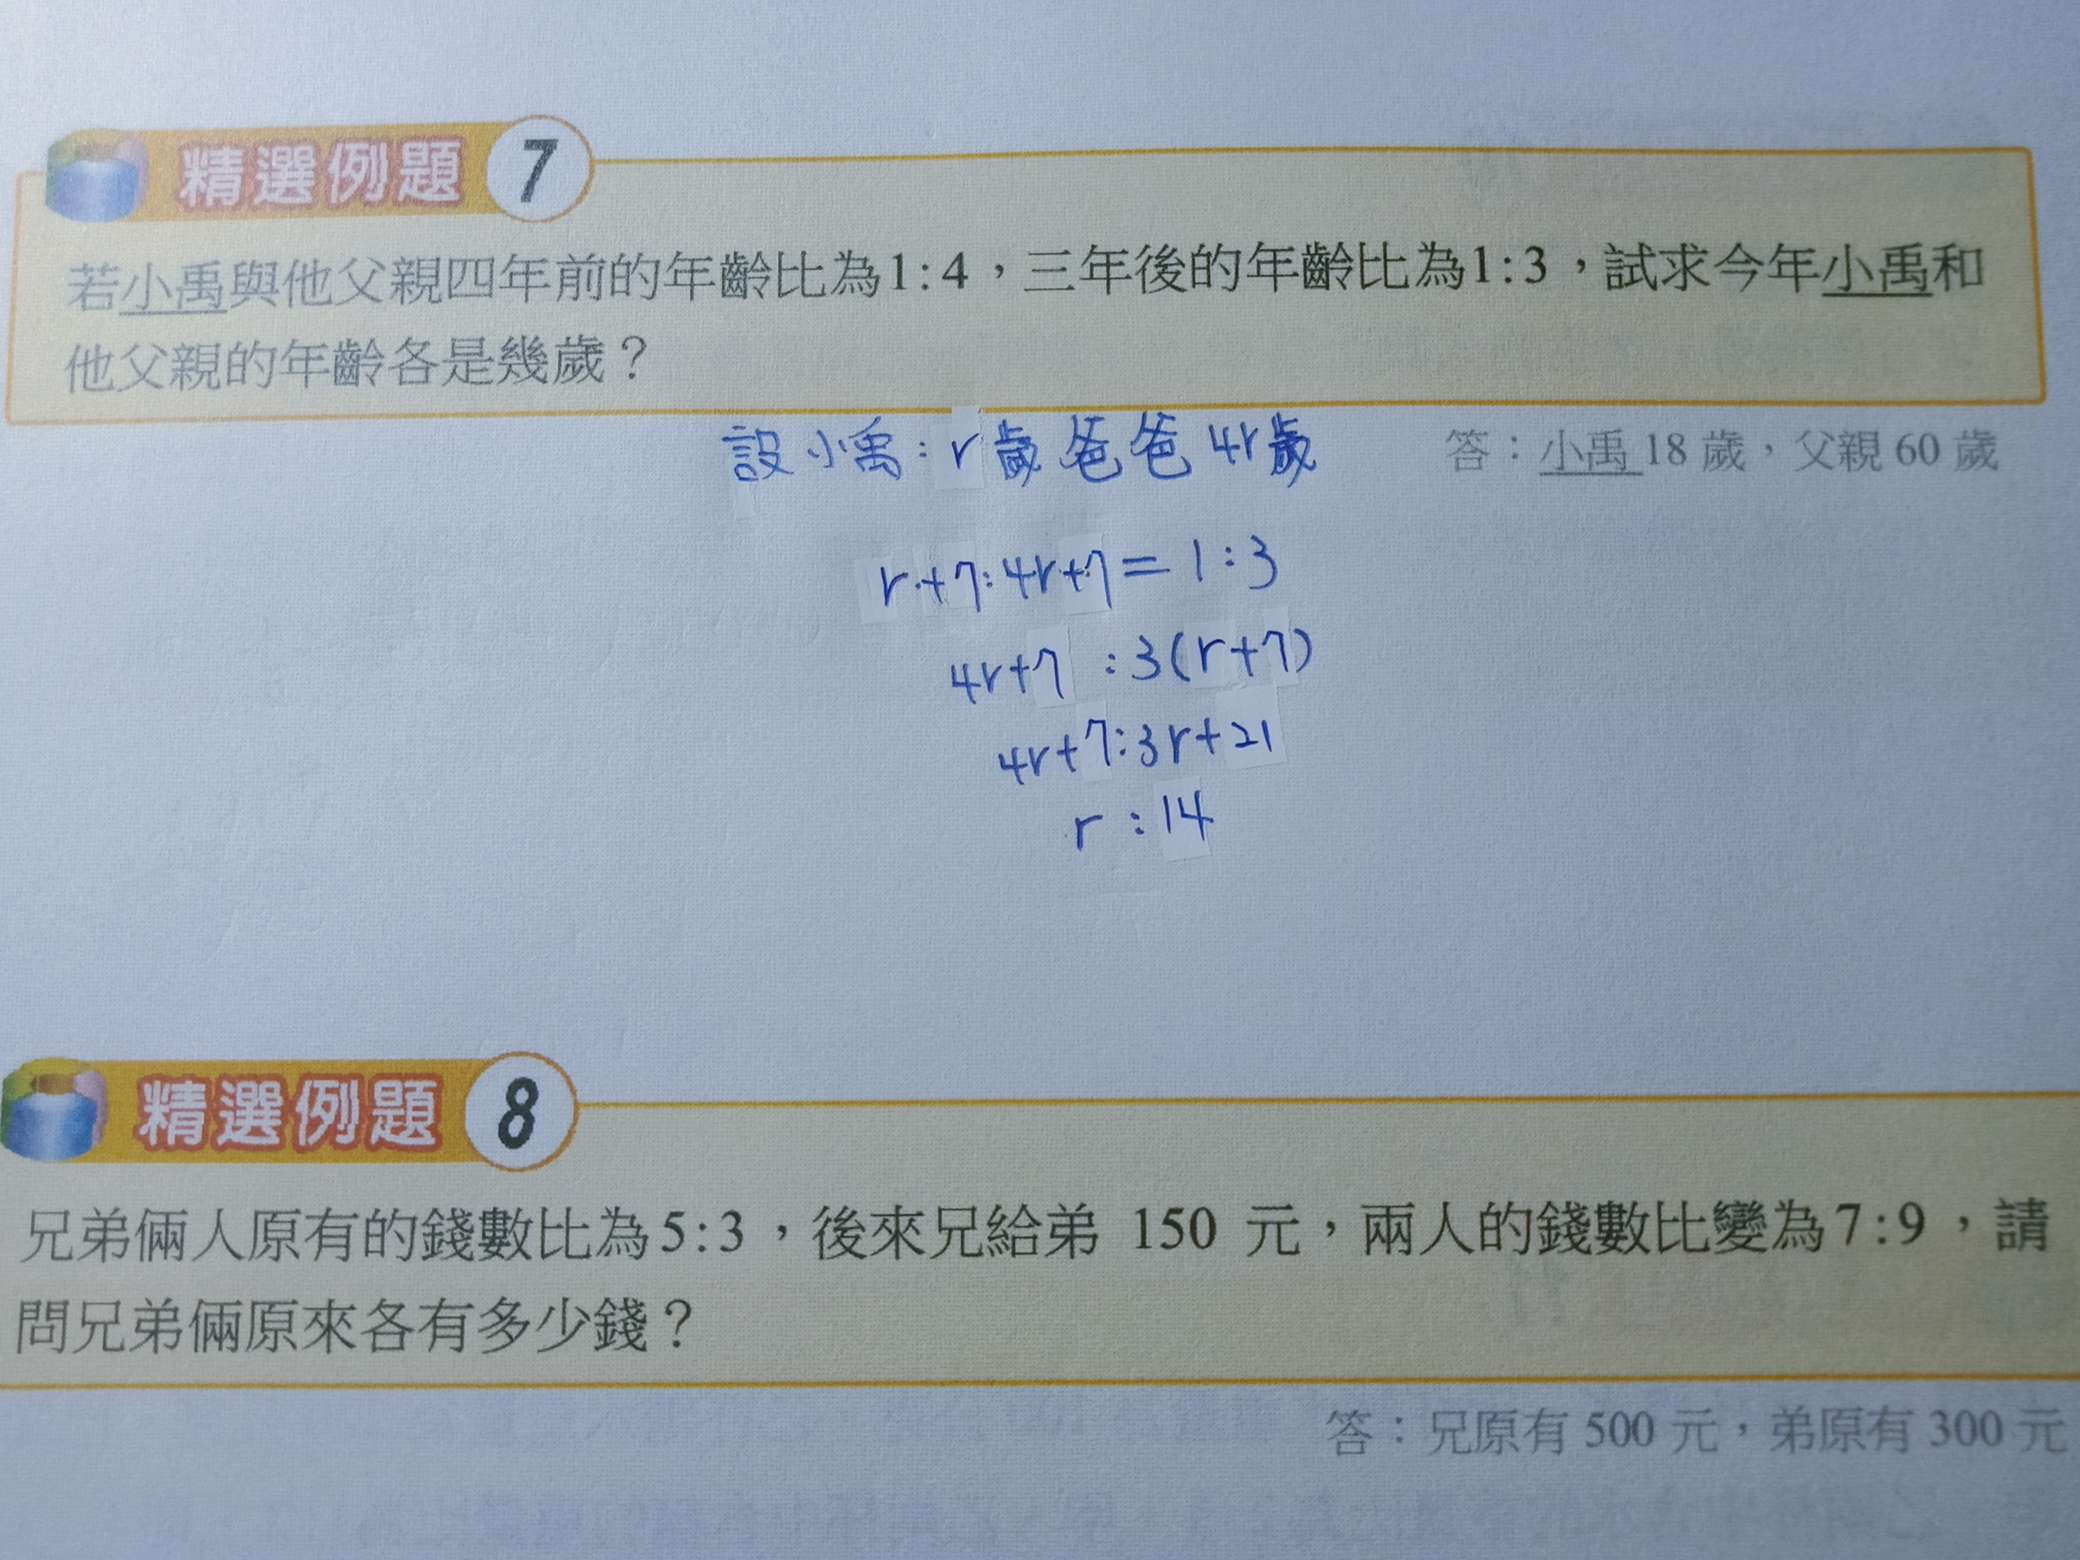 精選例題 7
若小禹與他父親四年前的年齡比為1:4，三年後的年齡比為1:3，試求今年小禹和
他父親的年齡各是幾歲？
設小禹:r歲 爸爸4r歲
答：小禹18歲，父親60歲
r+7:4r+7=1:3
4r+7 :3(r+7)
4r+7:3r+21
r :14
精選例題 8
兄弟倆人原有的錢數比為5:3，後來兄給弟 150 元，兩人的錢數比變為7:9，請
問兄弟倆原來各有多少錢？
答：兄原有500元，弟原有300元